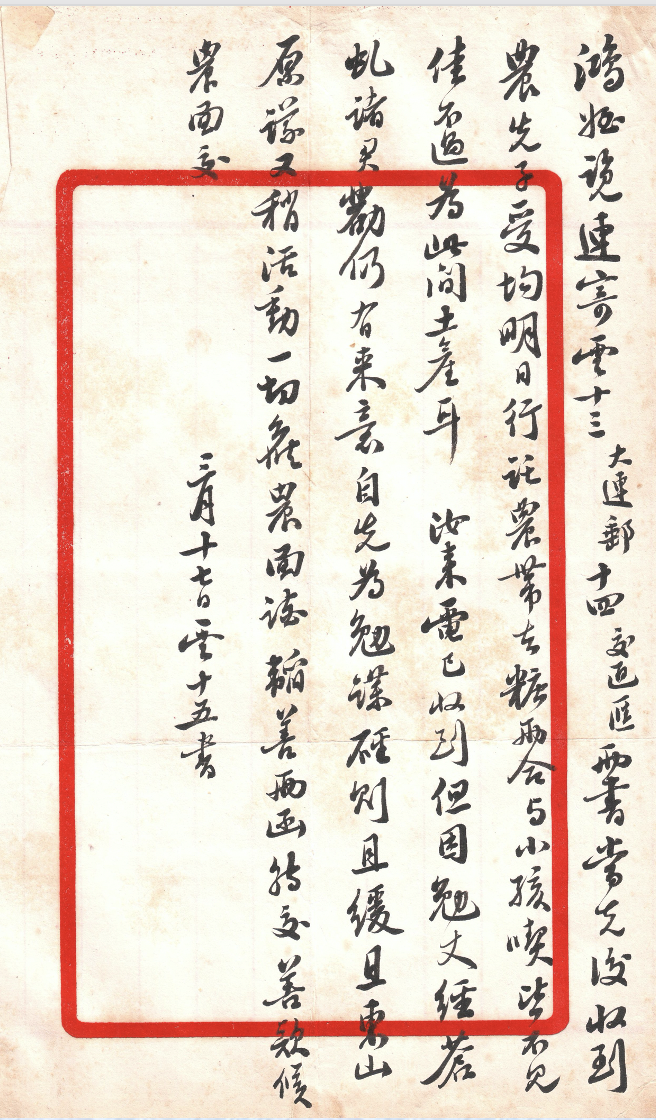 鴻姪覽連寄雲十三大連郵十四交通匯兩書當先後收到
農先子受均明日行託農帶去糖兩合与小孩喫皆不見
佳不過為此間土產耳 汝來電已收到但因勉丈經蒼
虬諸君勸仍有來意自先為勉謀礄則且緩且東山
原議又稍活動一切候農面談 韜善兩函轉交善款候
農面交
三月十七日雲十五書